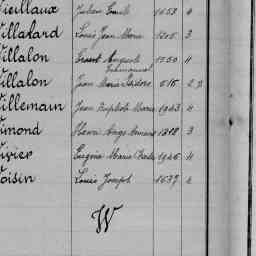 Vieillaux Julien Emile 1053 4
Villakard Louis Jean Marie 1205 3
Villalon Ernest Auguste Emmanuel 1250 4
Villalon Jean Marie Isidore 516 2
Villemain Jean Baptiste Marie 1943 4
Vimond Henri Ange Armand 1218 3
Vivier Eugène Marie Charles 1946 4
Voisin Louis Joseph 1537 4
W